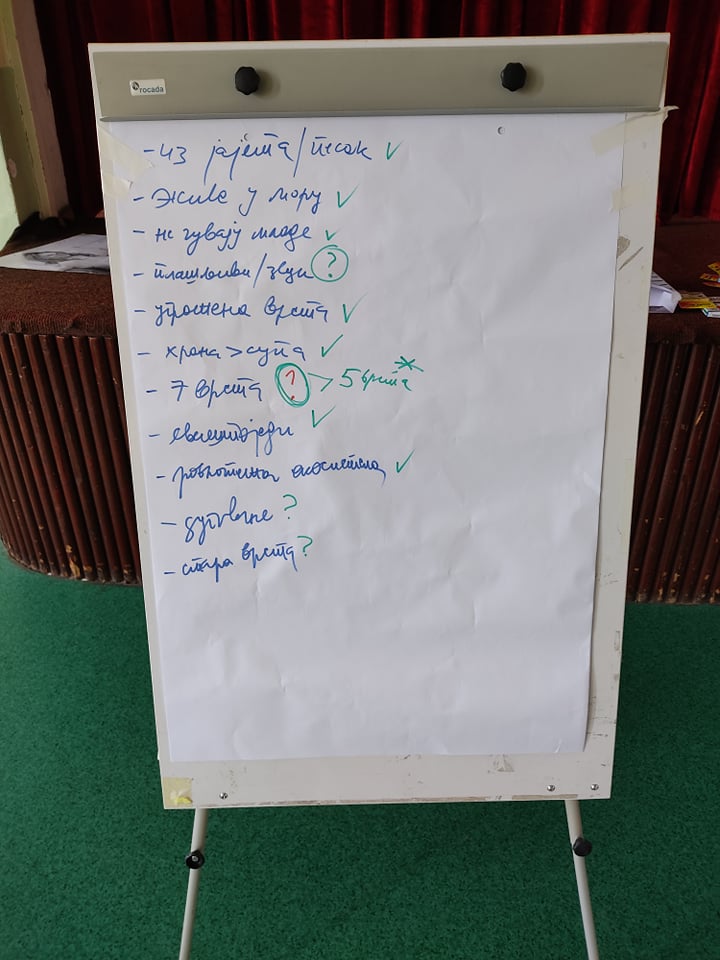 rocada
- из јајета / песак ✓
- живе у мору ✓
- не чувају младе ✓
- плашљиви / звук ?
- угрожена врста ✓
- храна > супа ✓
- 7 врста ? > 5 врста *
- свештоједи ✓
- равнотежа екосистема ✓
- дуговечне ?
- стара врста ?